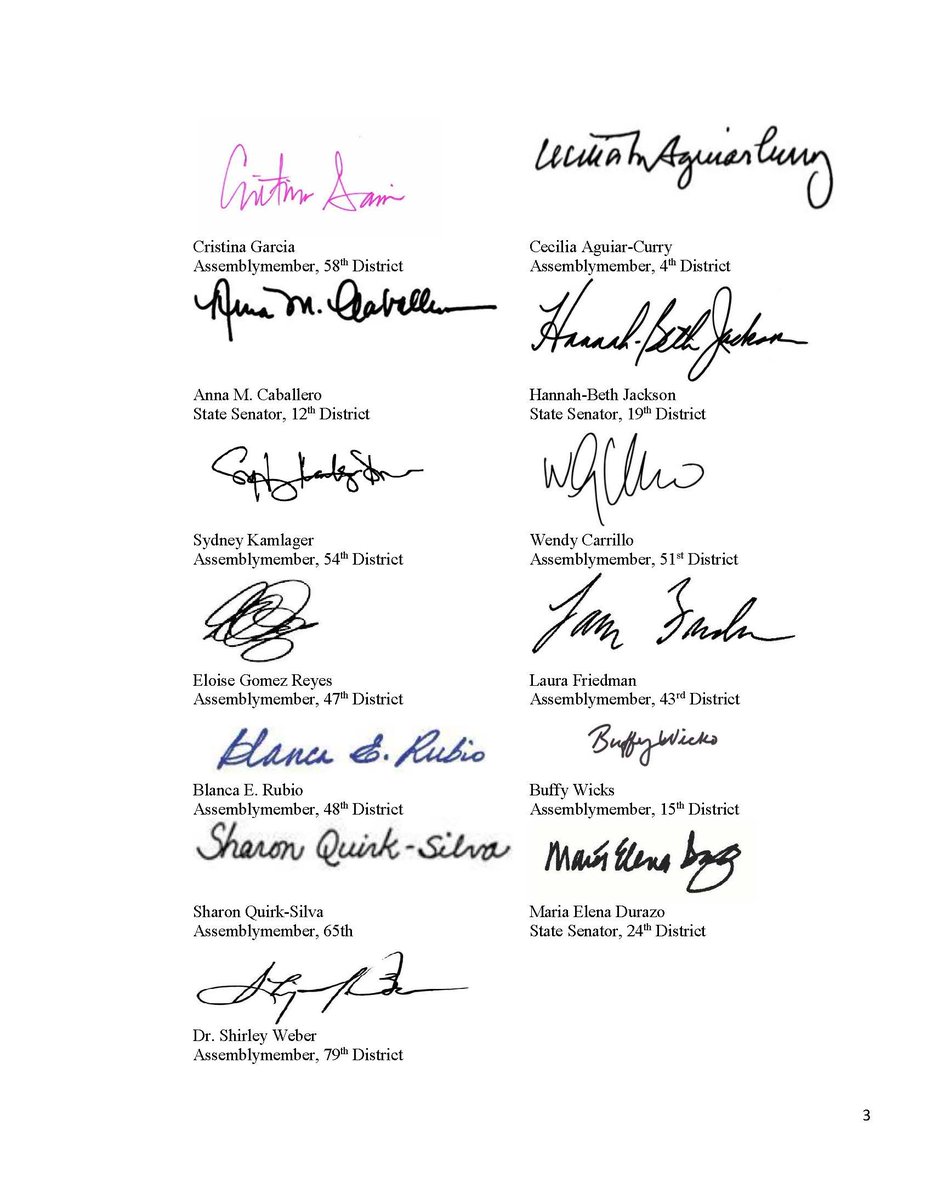 Cristina Garcia
Assemblymember, 58th District
Cecilia Aguiar-Curry
Assemblymember, 4th District
Anna M. Caballero
Anna M. Caballero
State Senator, 12th District
Hannah-Beth Jackson
Hannah-Beth Jackson
State Senator, 19th District
Sydney Kamlager
Assemblymember, 54th District
Wendy Carrillo
Assemblymember, 51st District
Eloise Gomez Reyes
Assemblymember, 47th District
Laura Friedman
Assemblymember, 43rd District
Blanca E. Rubio
Blanca E. Rubio
Assemblymember, 48th District
Buffy Wicks
Buffy Wicks
Assemblymember, 15th District
Sharon Quirk-Silva
Sharon Quirk-Silva
Assemblymember, 65th
Maria Elena Durazo
State Senator, 24th District
Dr. Shirley Weber
Assemblymember, 79th District
3